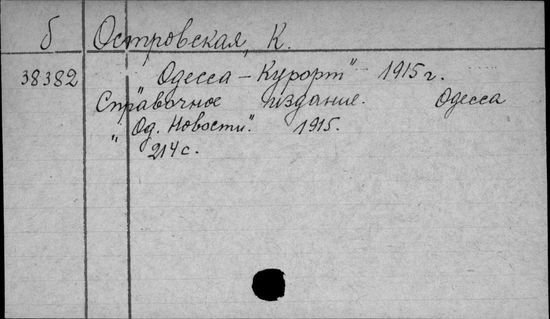 б Островская, К.
38382 "Одесса – Курорт" 1915 г.
Справочное издание. Одесса
"Од. Новости." 1915.
214 с.